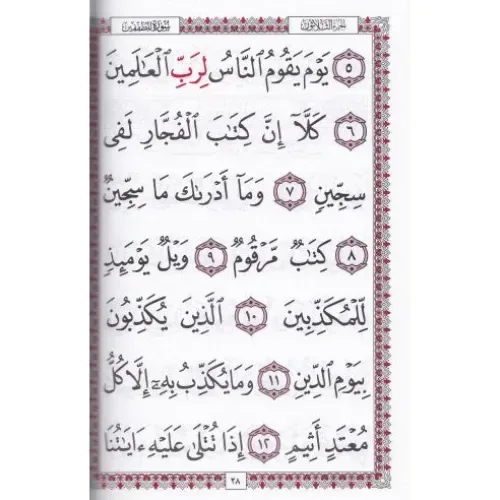 سورة المطففين الجزء الثلاثون
٥ يَوْمَ يَقُومُ ٱلنَّاسُ لِرَبِّ ٱلْعَـٰلَمِينَ
٦ كَلَّآ إِنَّ كِتَـٰبَ ٱلْفُجَّارِ لَفِى
سِجِّينٍ ٧ وَمَآ أَدْرَىٰكَ مَا سِجِّينٌ
٨ كِتَـٰبٌ مَّرْقُومٌ ٩ وَيْلٌ يَوْمَئِذٍ
لِّلْمُكَذِّبِينَ ١٠ ٱلَّذِينَ يُكَذِّبُونَ
بِيَوْمِ ٱلدِّينِ ١١ وَمَا يُكَذِّبُ بِهِۦٓ إِلَّا كُلُّ
مُعْتَدٍ أَثِيمٍ ١٢ إِذَا تُتْلَىٰ عَلَيْهِ ءَايَـٰتُنَا
٢٨